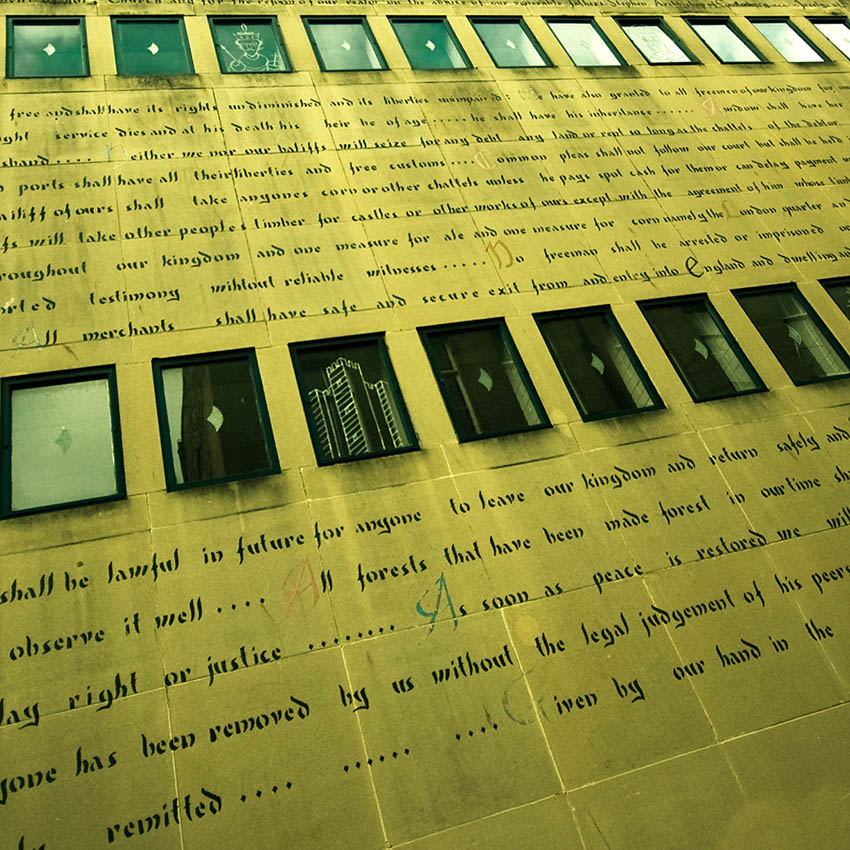 and for the reform of our realm on the advice of our venerable fathers Stephen Archbishop of
free and shall have its rights undiminished and its liberties unimpaired We have also granted to all freemen of our kingdom for our
service dies and at his death his heir be of age ..... he shall have his inheritance ...... A widow shall have her
husband .... Neither we nor our bailiffs will seize for any debt any land or rent so long as the chattels of the debtor
ports shall have all their liberties and free customs .... Common pleas shall not follow our court but shall be held
bailiff of ours shall take anyones corn or other chattels unless he pays spot cash for them or can delay payment
will take other peoples timber for castles or other works of ours except with the agreement of him whose timber
throughout our kingdom and one measure for ale and one measure for corn namely the London quarter and
testimony without reliable witnesses ..... No freeman shall be arrested or imprisoned
All merchants shall have safe and secure exit from and entry into England and dwelling and
shall be lawful in future for anyone to leave our kingdom and return safely and
observe it well .... All forests that have been made forest in our time
right or justice ........ As soon as peace is restored we will
anyone has been removed by us without the legal judgement of his peers
remitted .... ...... .... Given by our hand in the